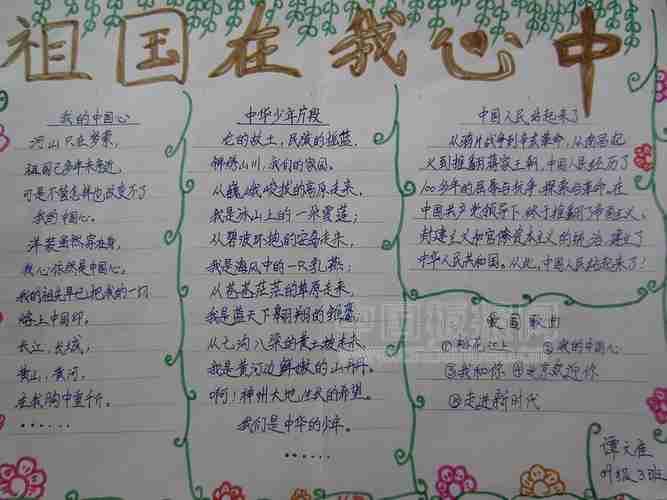 祖国在我心中
我的中国心
河山只在梦萦,
祖国已多年未亲近,
可是不管怎样也改变不了
我的中国心。
洋装虽然穿在身,
我心依然是中国心。
我的祖先早已把我的一切
烙上中国印。
长江,长城,
黄山,黄河,
在我胸中重千斤。
......
中华少年片段
龙的故土,民族的摇篮,
锦绣山川,我们的家园。
从巍峨峻拔的高原走来,
我是冰山上的一朵雪莲;
从碧波环抱的宝岛走来,
我是海风中的一只乳燕;
从苍苍茫茫的草原走来,
我是蓝天下翱翔的雏鹰;
从七沟八梁的黄土坡走来,
我是黄河边鲜嫩的山丹丹。
啊!神州大地生我的希望。
我们是中华的少年。
......
中国人民站起来了
从鸦片战争到辛亥革命,从南昌起
义到推翻蒋家王朝,中国人民经历了
100多年的屈辱与抗争、探索与革命。在
中国共产党领导下,终于推翻了帝国主义、
封建主义和官僚资本主义的统治,建立了
中华人民共和国。从此,中国人民站起来了!
爱国歌曲
①桃花江上 ②我的中国心
③我和你 ④北京欢迎你
⑤走进新时代
谭文
级3班